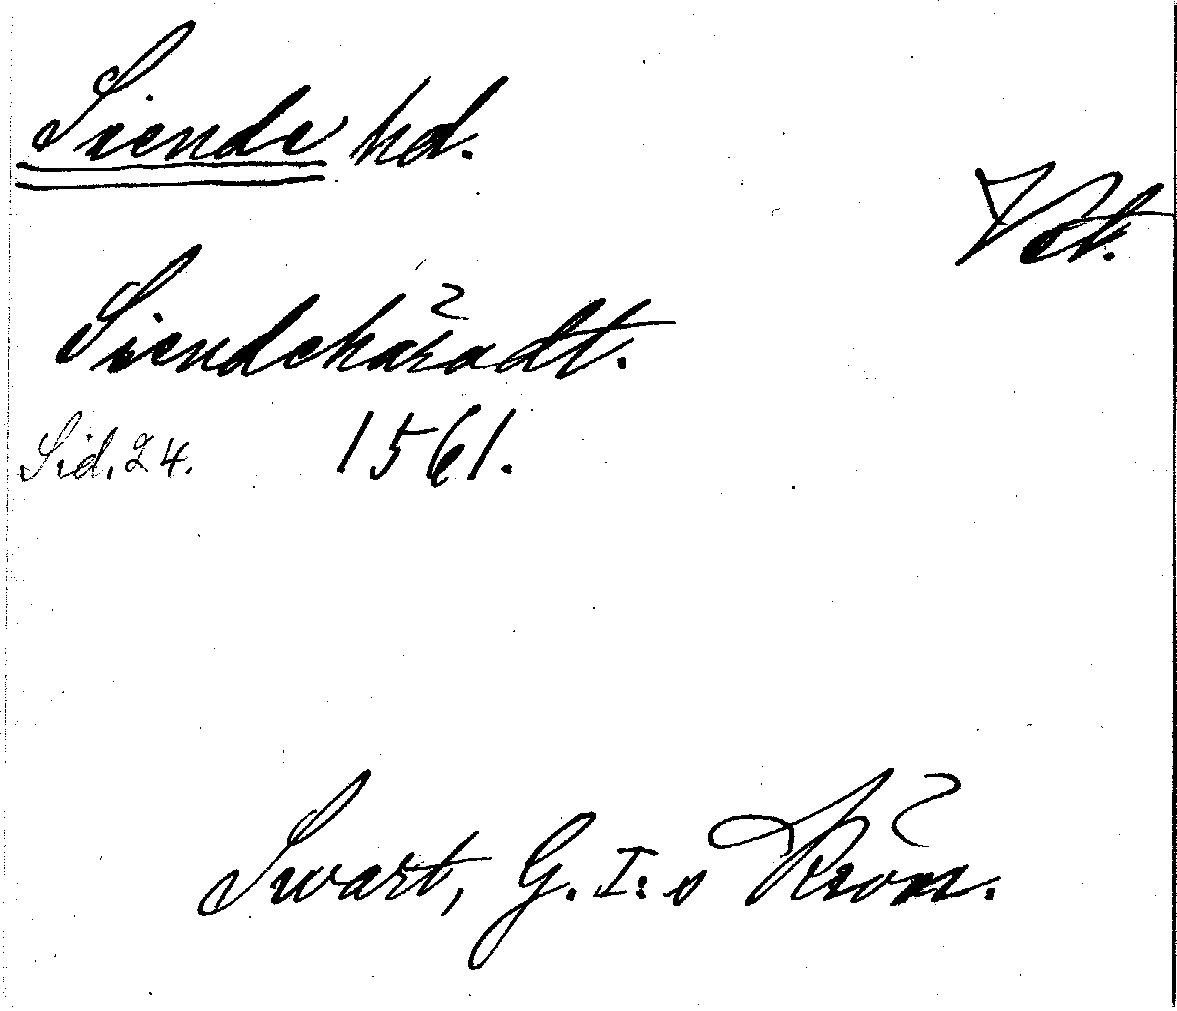 Siende hd.
Vstm.
Siendehäradt.
Sid. 24. 1561.
Swart, G. I:s Krön.